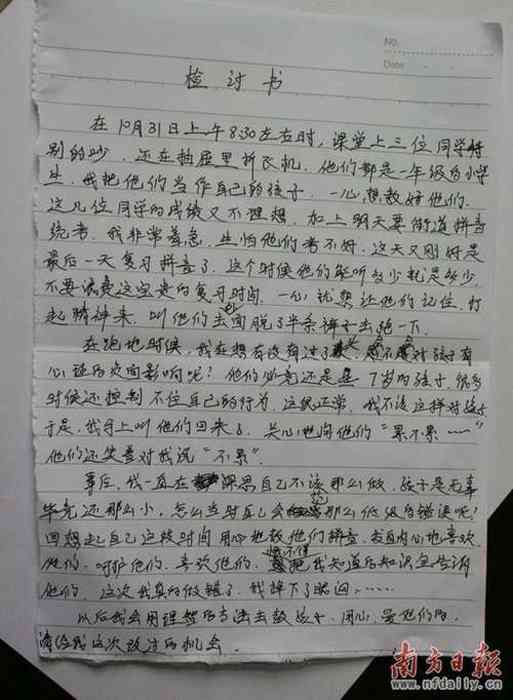 No.
Date
检讨书
在10月31日上午8:30左右时,课堂上三位同学特
别的吵,还在抽屉里折飞机,他们都是一年级的小学
生,我把他们当作自己的孩子,一心想教好他们,
这几位同学的成绩又不理想,加上明天要街道拼音
统考,我非常着急,生怕他们考不好,这天又刚好是
最后一天复习拼音了,这个时候他们能听多少就是多少,
不要浪费这宝贵的复习时间,一心就想让他们记住,打
起精神来,叫他们去脱了半条裤子去跑一下.
在跑地时候,我在想有没有过了,会不会对孩子有
心理的负面影响呢?他们必竟还是 7岁的孩子,很多
时候还控制不住自己的行为,这很正常,我不该这样对孩子
于是,我马上叫他们回来了,关心地问他们"累不累……"
他们还笑着对我说"不累".
事后,我一直在深思自己不该那么做,孩子是无辜
毕竟还那么小,怎么当时自己会犯那么低级的错误呢?
回想起自己这段时间用心地教他们拼音,我自内心地喜欢
他们,呵护他们,喜欢他们,恨不得把我知道的知识全告诉
他们,这次我真的做错了,我掉下了眼泪,……
以后我会用理智的方法去教孩子,用心,爱他们的
请给我这次改过的机会.
南方日报
www.nfdaily.cn